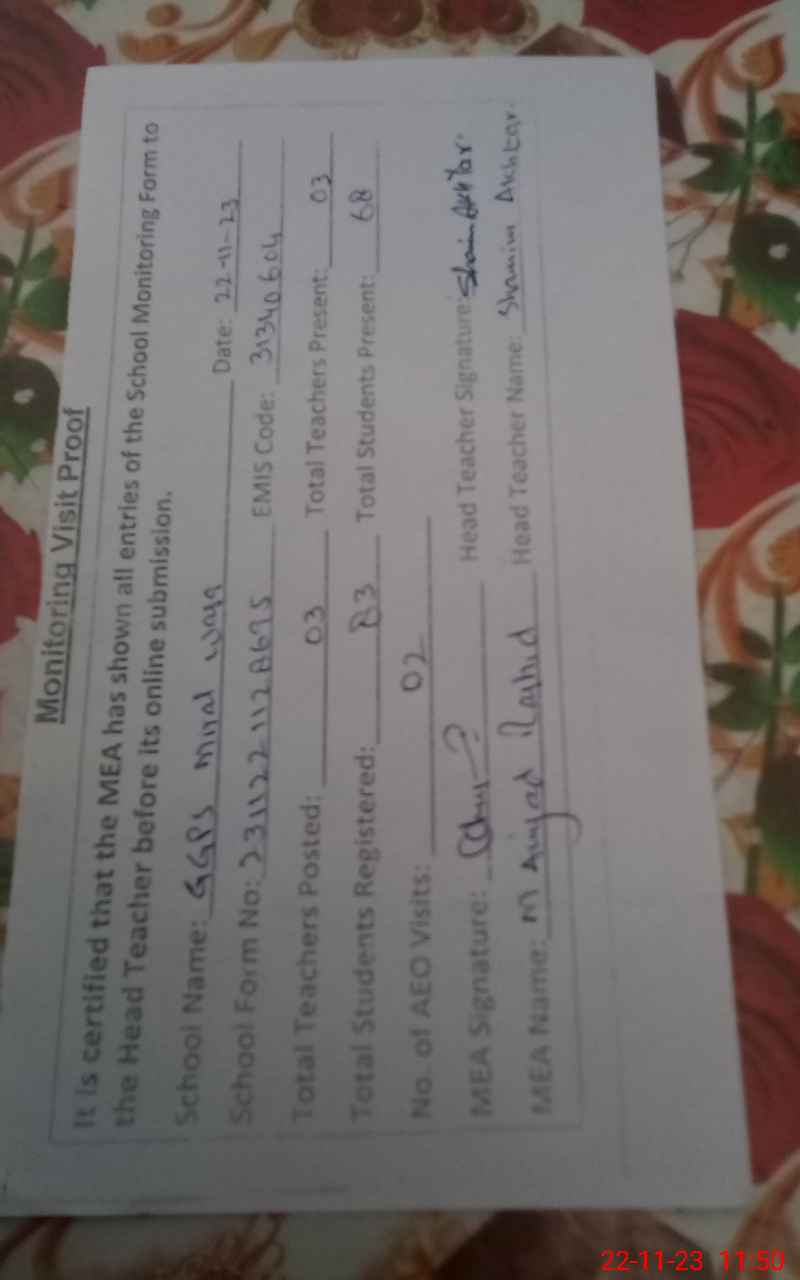 Monitoring Visit Proof
It is certified that the MEA has shown all entries of the School Monitoring Form to
the Head Teacher before its online submission.
School Name: GGPS Miral Date: 22-11-23
School Form No: EMIS Code: 31340604
Total Teachers Posted: 03 Total Teachers Present: 03
Total Students Registered: 83 Total Students Present: 68
No. of AEO Visits: 02
MEA Signature: Head Teacher Signature: Akhtar
MEA Name: M Rashid Head Teacher Name: Shamim Akhtar
22-11-23 11:50